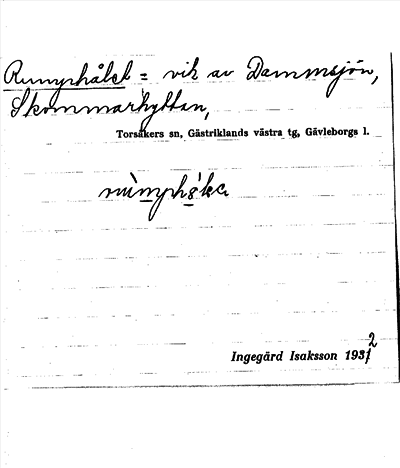 Rumphålet = vik av Dammsjön,
Skommarhyttan,
Torsåkers sn, Gästriklands västra tg, Gävleborgs l.
Ingegärd Isaksson 1932